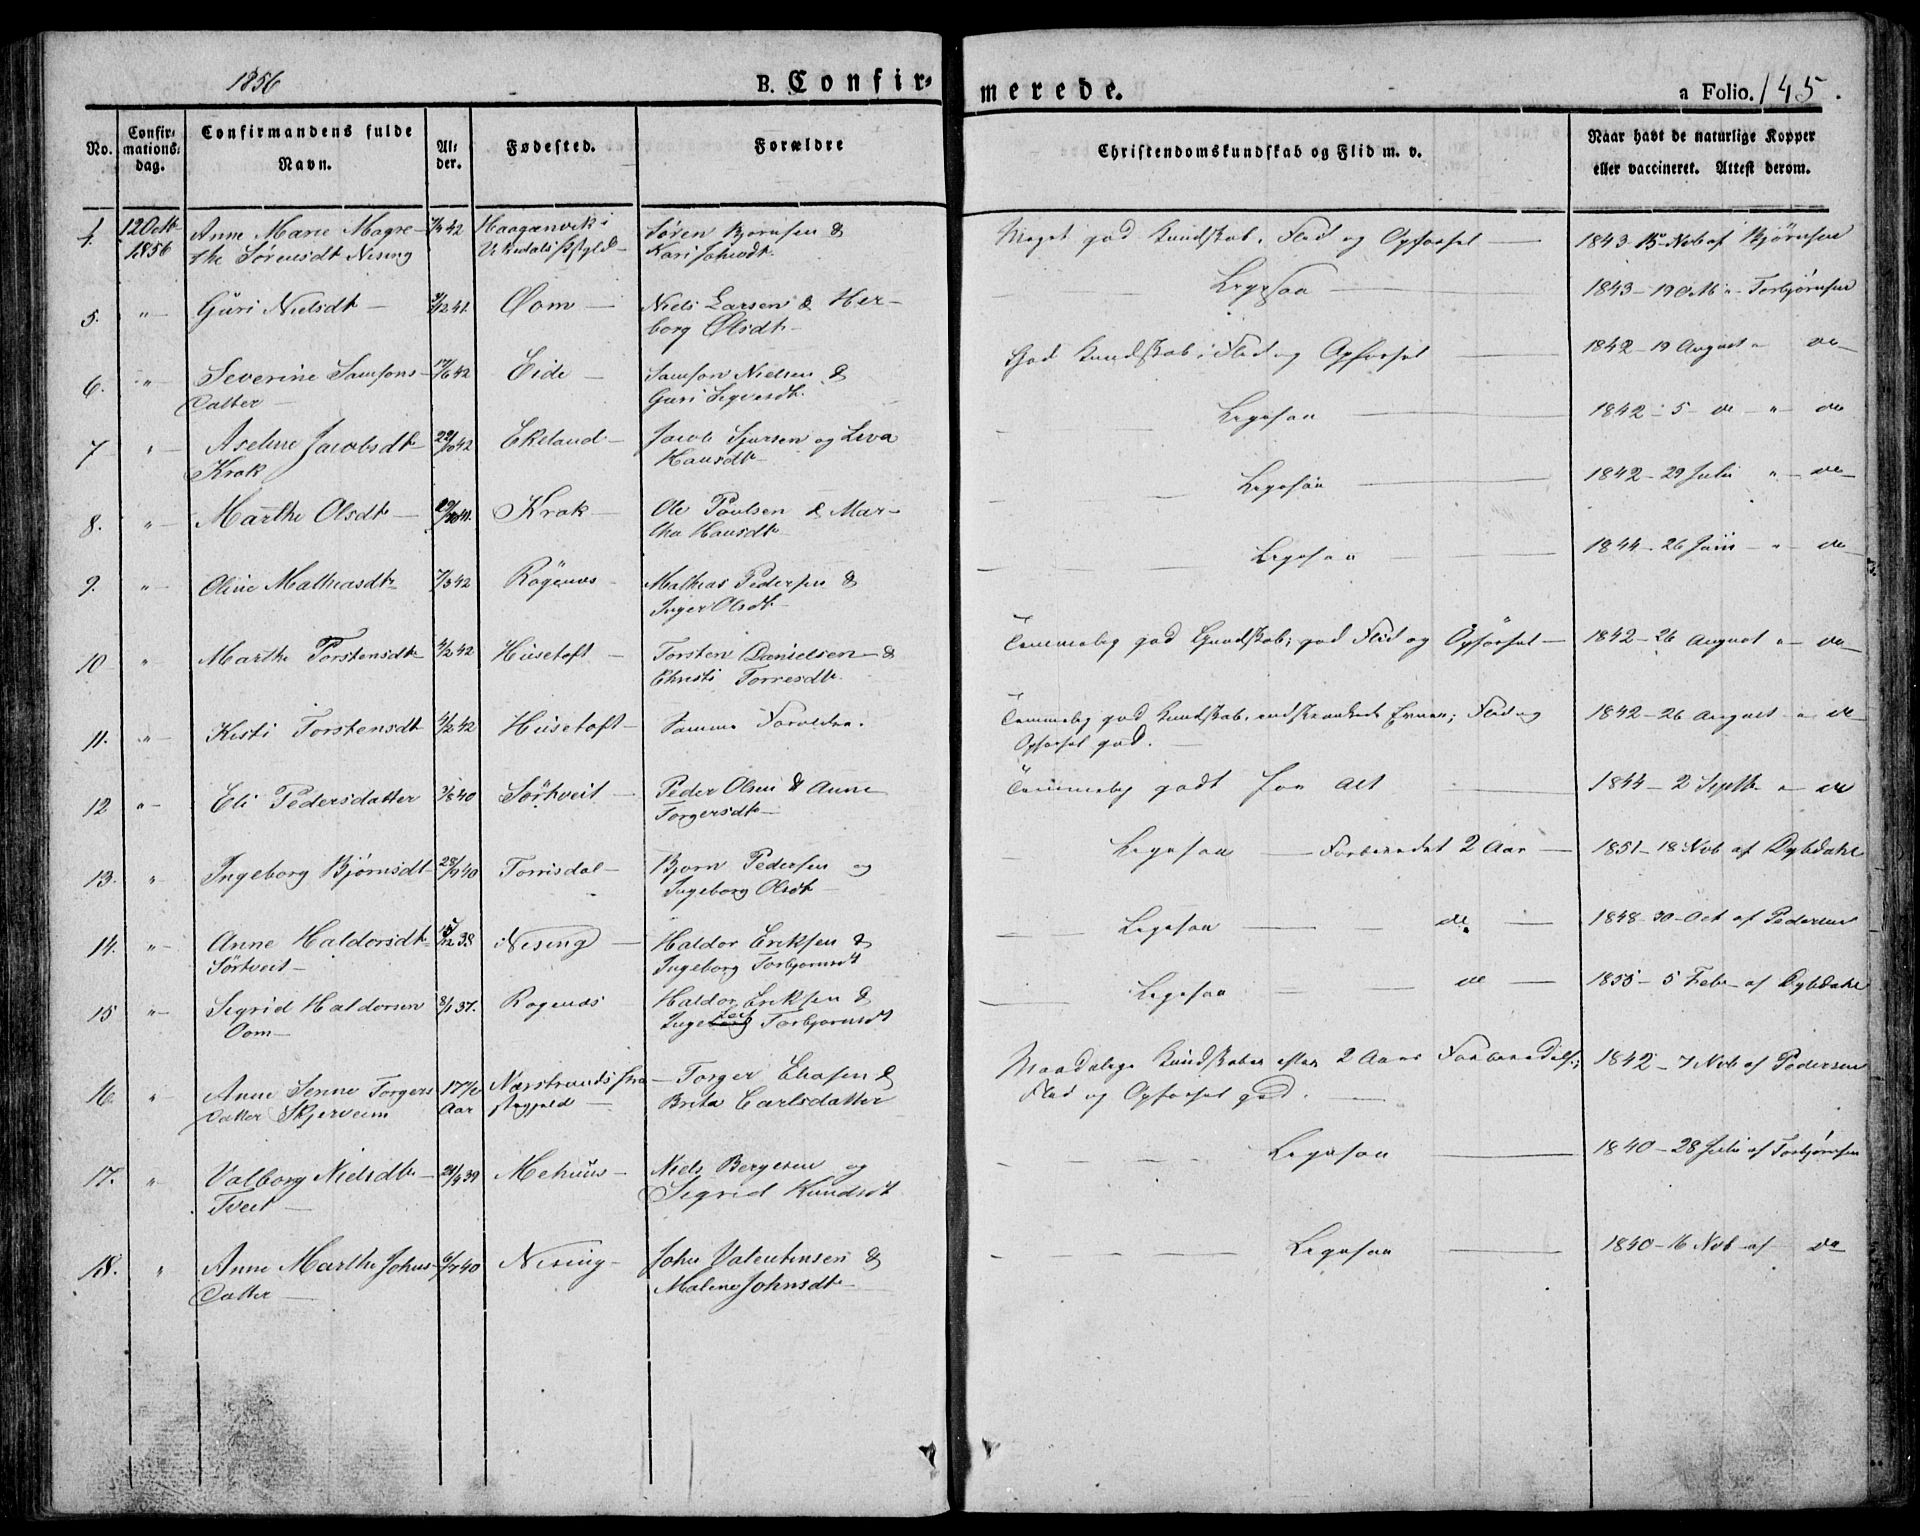 1856
B. Confir-
merede.
a Folio. 145.
No.
Confir-
mations-
dag.
Confirmandens fulde
Navn.
Al-
der.
Fødested.
Forældre
Christendomskundskab og Flid m. v.
Naar havt de naturlige Kopper
eller vaccineret. Attest derom.
4. 12 Octb Anne Marie Magre- 42 Haaganvik i Søren Bjørnsen & Meget god Kundskab, Flid og Opførsel — 1843 15 Nob af Bjørnsen
1856 the Sørensdt Nesing Vikedals Kari Johnsdt.
5. " Guri Nielsdt — 3/12 41. Oom — Niels Larsen & Her- Ligesaa — 1843 – 19 Octb " Torbjørnsen
borg Olsdt –
6. " Severine Samsons- 17/6 42 Eide — Samson Nielsen & God Kundskab; Flid og Opførsel — 1842 – 19 August " do
Datter — Guri Sigvesdt.
7 " Aseline Jacobsdt 22/10 42 Ekeland – Jacob Sjursen og Siva Ligesaa — 1842 – 5 do " do
Krak Hansdt –
8. " Marthe Olsdt — Krak – Ole Poulsen & Mar- Ligesaa — 1842 – 29 Juli " do
tha Hansdt –
9. " Oline Mathiasdt 7/3 42 Rögenes – Mathias Pedersen & Ligesaa — 1844 – 26 Juni " do
Inger Olsdt –
10 " Marthe Torstensdt 4/2 42 Husetoft – Torsten Danielsen & Temmelig god Kundskab; god Flid og Opførsel — 1842 – 26 August " do
Christi Torresdt.
11. " Kisti Torstensdt 4/2 42 Husetoft – Samme Forældre. Temmelig god Kundskab, indskrænkede Evner; Flid og 1842 – 26 August " do
Opførsel god. —
12 " Eli Pedersdatter 3/8 40 Sörtveit – Peder Olsen & Anne Temmelig godt for Alt — 1844 – 2 Septb " do
Torgersdt –
13. " Ingeborg Bjørnsdt 28/9 40 Torrisdal – Bjorn Pedersen og Ligesaa — Forberedet 2 Aar — 1851 – 18 Nob af Dybdahl
Ingeborg Olsdt –
14. " Anne Haldorsdt 38 Nesing – Haldor Eriksen & Ligesaa — do — 1848 – 30 – Oct af Pedersen
Sörtveit – Ingeborg Torbjornsdt
15 " Sigrid Haldorsen 8/1 37. Rogenæs Haldor Eriksen & Ligesaa — do — 1855 – 5 Febr af Dybdahl
Oom — Inge Torbjornsdt
16. " Anne Senne Torgers 17 1/2 Nærstrands Præ – Torger Eliasen & Maadelige Kundskaber efter 2 Aars Forberedelse; 1842 – 7 Nob af Pedersen
Datter Skjerveim Aar stegjeld — Brita Carlsdatter Flid og Opførsel god. —
17. " Valborg Nielsdt 21/4 39 Mehuus – Niels Bergesen og Ligesaa — 1840 – 28 Juli af Torbjørnsen
Tveit — Sigrid Knudsdt
18. " Anne Marthe Johns 6/7 40 Nesing – John Valentinsen & Ligesaa — 1840 – 16 Nob af do
Datter — Malene Johnsdt –